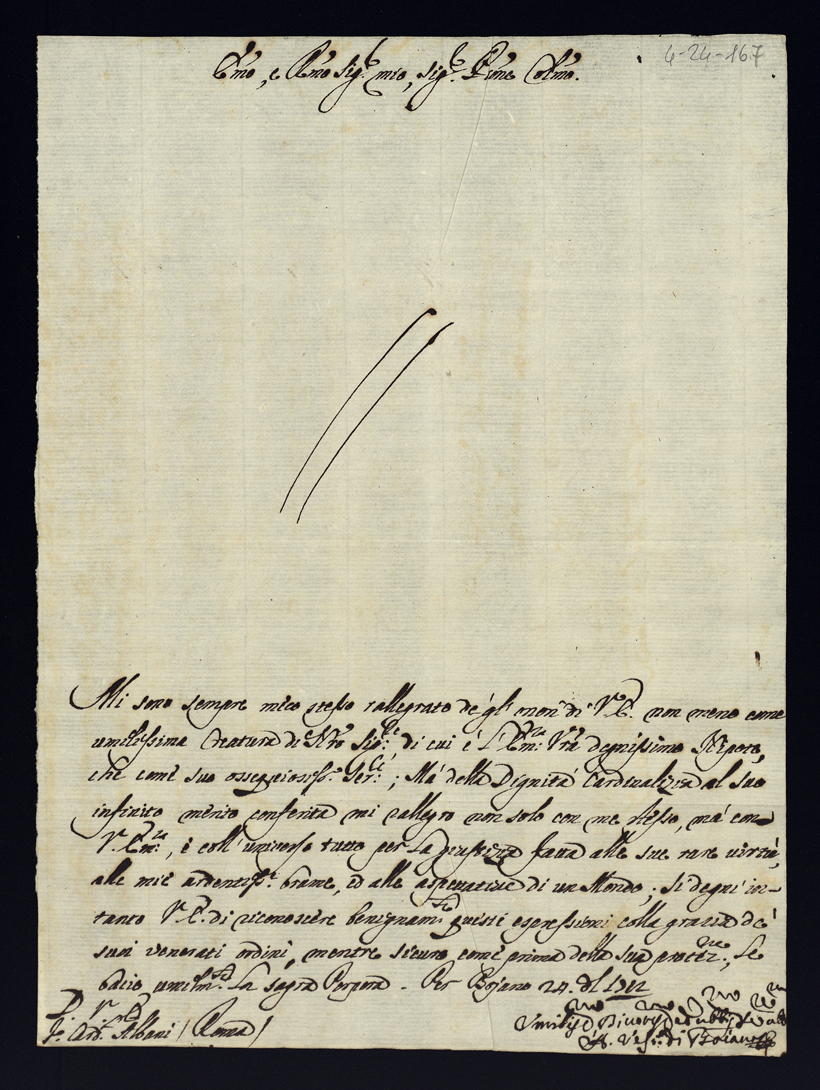 4-24-167
Emo, e Rmo Sigr. mio, Sigr. Prone Colmo.
Mi sono sempre meco stesso rallegrato de gl' onori di V. E. non meno come
umilissima Creatura di Nro Sigre. di cui é l' Emza: Vra degnissimo Nipote,
che come suo ossequiosiss. Serre.; Mà della Dignità Cardinalizia al suo
infinito merito conferita mi rallegro non solo con me stesso, mà con
V. Emza., e coll' universo tutto per la giustizia fatta alle sue rare virtù,
alle mie ardentiss.e brame, ed alle aspettative di un Mondo; Si degni in-
tanto V. E. di riconoscere benignamte. questi espressioni colla grazia de'
suoi venerati ordini, mentre sicuro, come prima della sua protezne., le
bacio umilmte. la sagra Porpora. Per Bojano 24. del 1712
D. V. Emza
Sr. Card. Albani / Roma /
A. Vesc. di Boiano